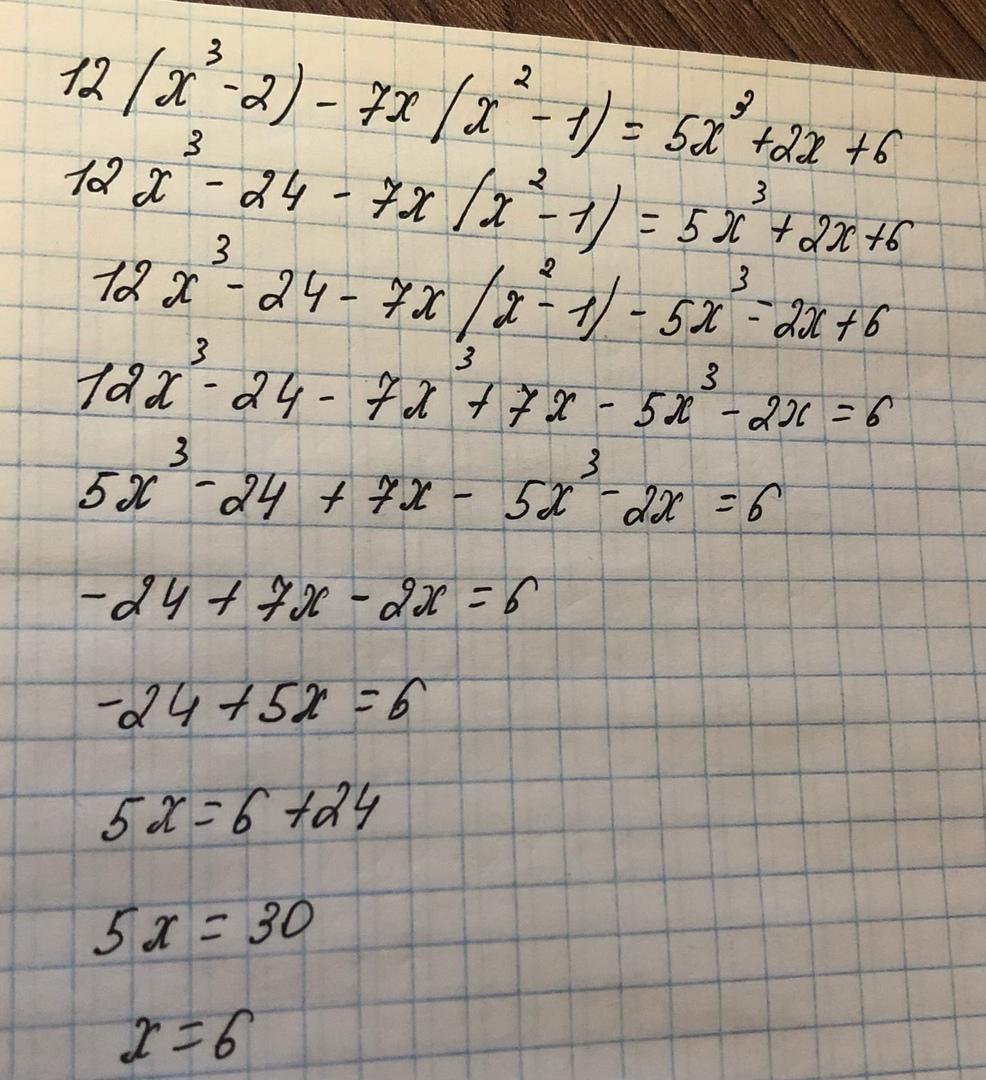 12(x³-2)-7x(x²-1)=5x³+2x+6
12x³-24-7x(x²-1)=5x³+2x+6
12x³-24-7x(x²-1)-5x³-2x+6
12x³-24-7x³+7x-5x³-2x=6
5x³-24+7x-5x³-2x=6
-24+7x-2x=6
-24+5x=6
5x=6+24
5x=30
x=6